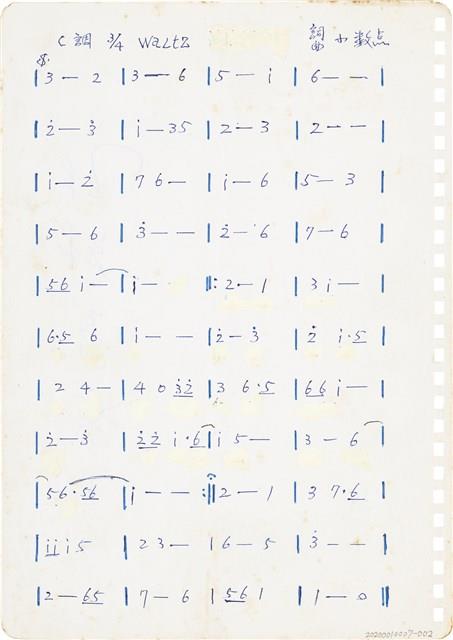 C 調 3/4 WALTZ 詞曲 小數点
|3 — 2 |3 — 6 |5 — i |6 — — |
|2̇ — 3̇ |i — 35 |2 — 3 |2 — — |
|i — 2̇ |7 6 — |i — 6 |5 — 3 |
|5 — 6 |3̇ — — |2̇ — 6 |7 — 6 |
|56 i — |i — |: 2 — 1 |3 i — |
|6·5 6 |i — — |2̇ — 3̇ |2̇ i·5 |
|2 4 — |4 0 3̇2̇ |3 6·5 |66 i — |
|2̇ — 3̇ |2̇2̇ i·6 |i 5 — |3 — 6 |
|56·56 |i — — :||2 — 1 |3 7·6 |
|iii5 |2 3 — |6 — 5 |3̇ — — |
|2 — 65 |7 — 6 |561 |1 — 0 ||
20200010007-002